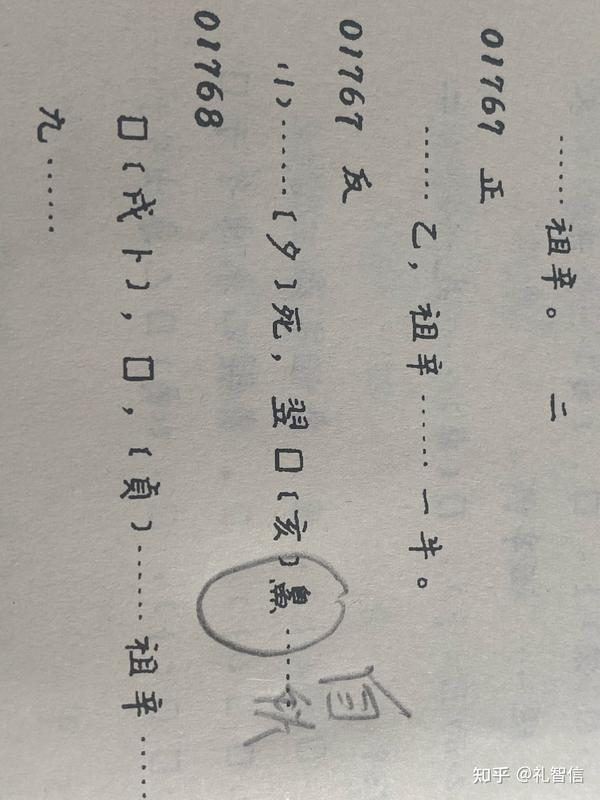 ……祖辛。 二
01767 正
……乙，祖辛……一羊。
01767 反
(1)……〔夕〕死，翌□〔亥〕……
01768
□〔戌卜〕，□，〔貞〕……祖辛……
九……
知乎 @礼智信